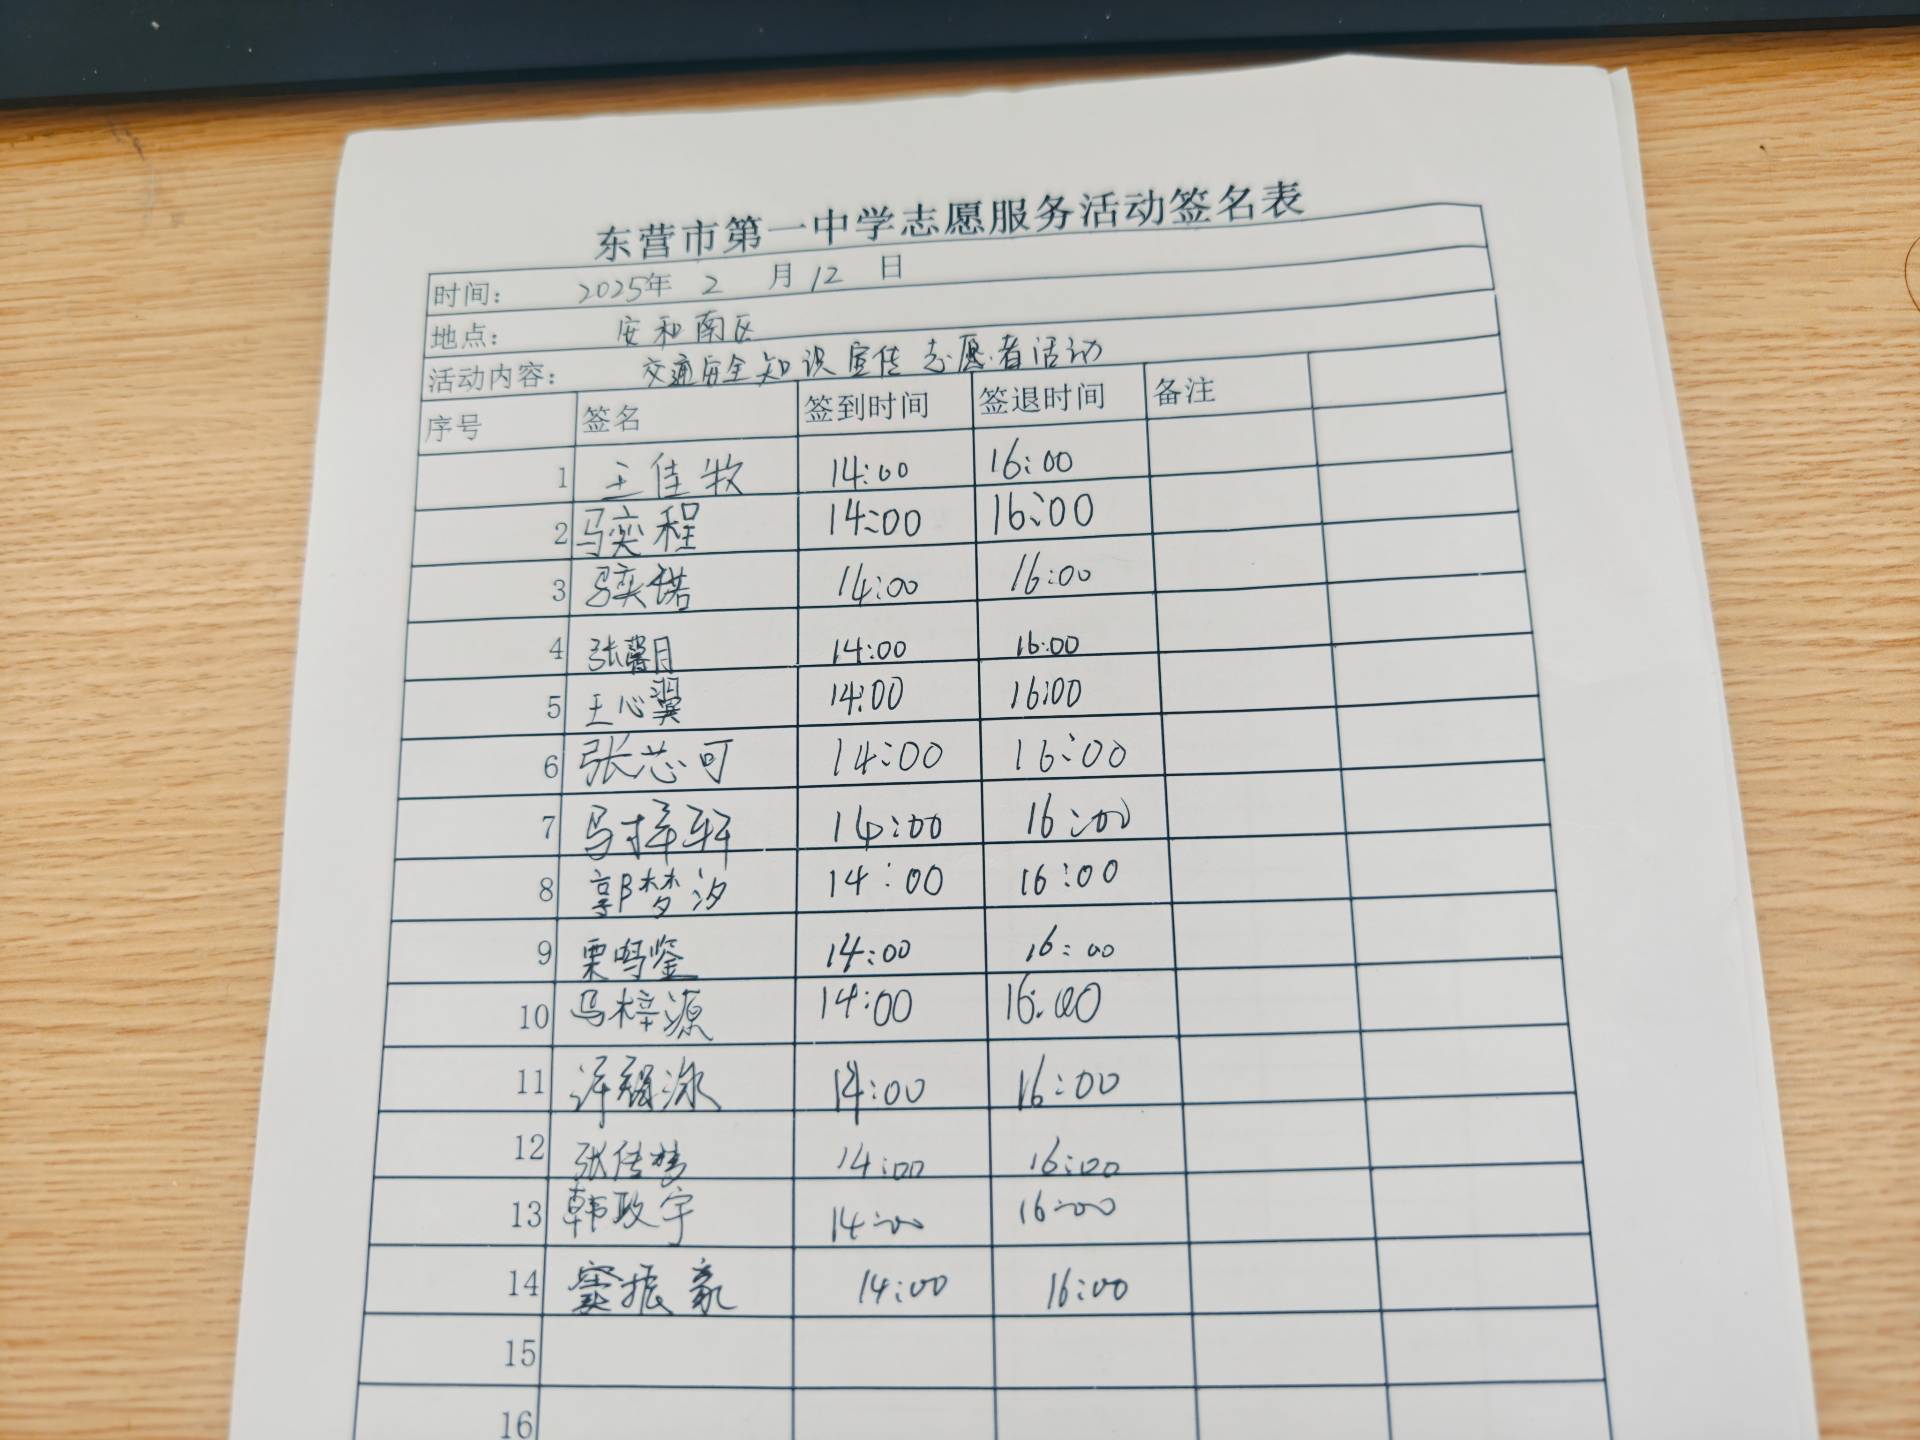 东营市第一中学志愿服务活动签名表
时间： 2025年 2 月 12 日
地点： 安和南区
活动内容： 交通安全知识宣传志愿者活动
序号 签名 签到时间 签退时间 备注
1 王佳牧 14:00 16:00
2 马奕程 14:00 16:00
3 马奕诺 14:00 16:00
4 张馨月 14:00 16:00
5 王心翼 14:00 16:00
6 张芯可 14:00 16:00
7 马梓轩 14:00 16:00
8 郭梦汐 14:00 16:00
9 栗鸣鉴 14:00 16:00
10 马梓源 14:00 16:00
11 许 14:00 16:00
12 张传 14:00 16:00
13 韩政宇 14:00 16:00
14 窦振豪 14:00 16:00
15
16